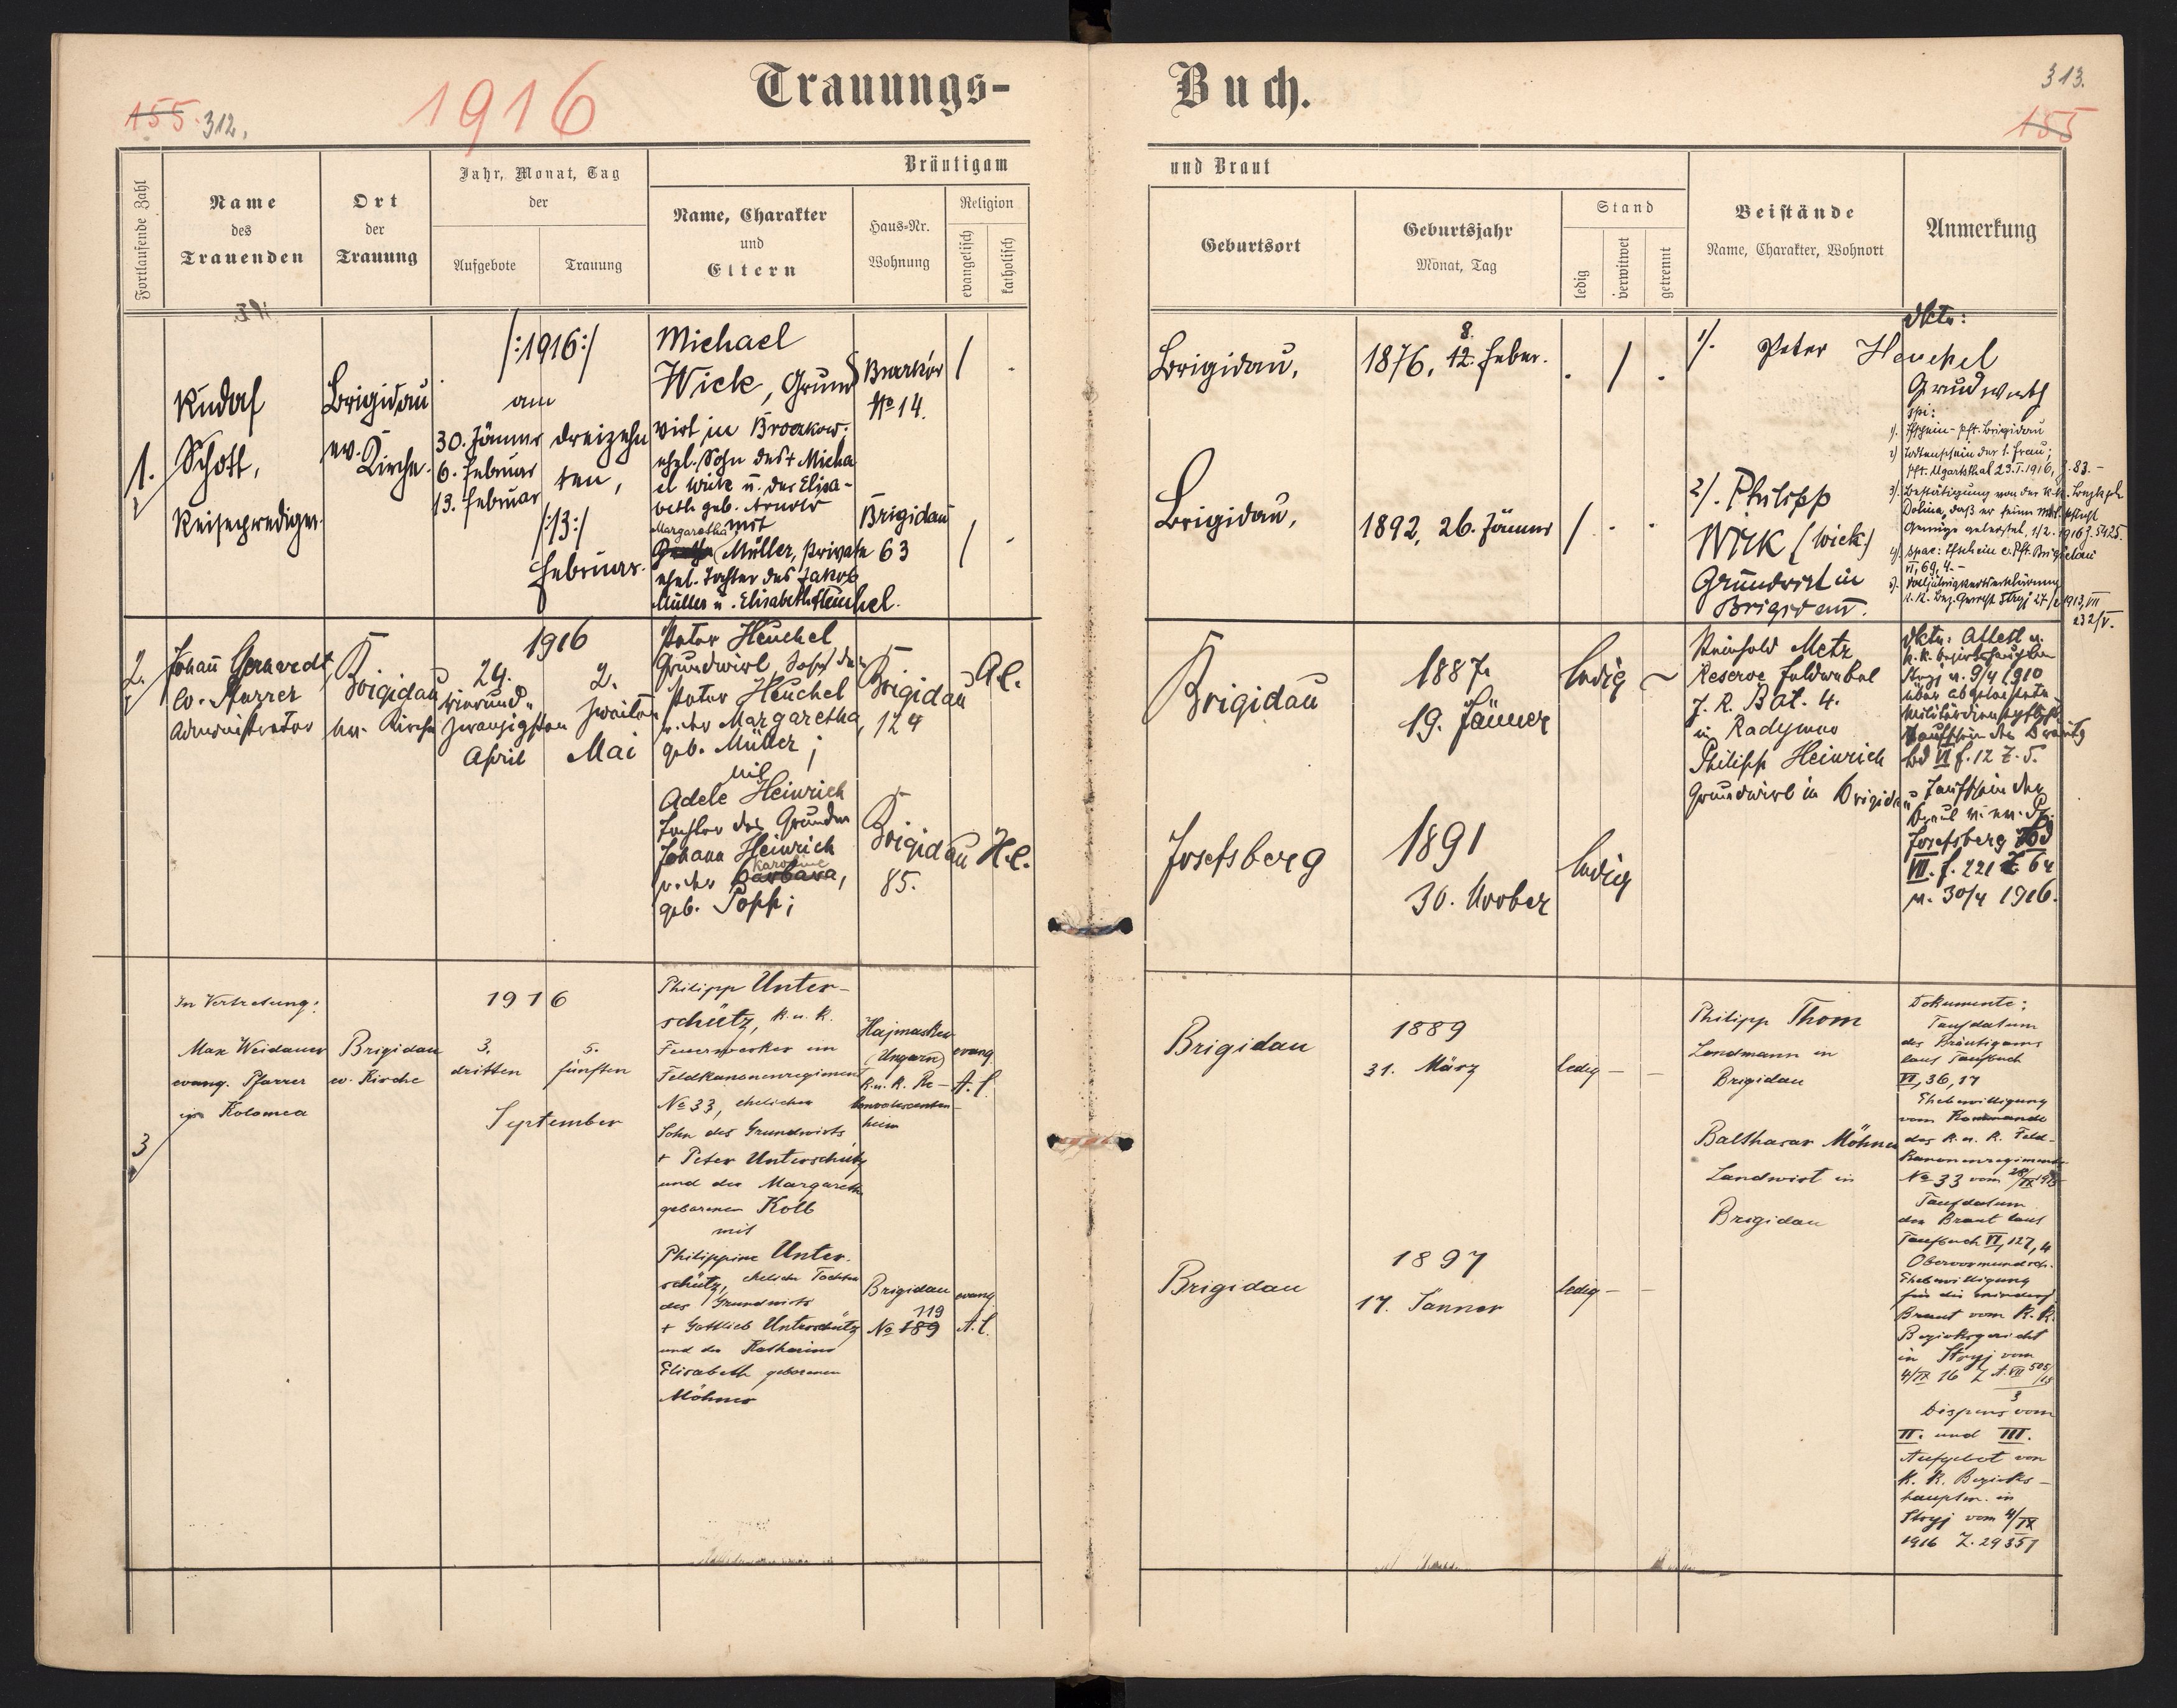 Trauungs-
Buch.
155. 312.
1916
313.
155
Fortlaufende Zahl
Name
des
Trauenden
Ort
der
Trauung
Jahr, Monat, Tag
der
Aufgebote
Trauung
Bräutigam
Name, Charakter
und
Eltern
Haus-Nr.
Wohnung
Religion
evangelisch
katholisch
und Braut
Geburtsort
Geburtsjahr
Monat, Tag
Stand
ledig
verwitwet
getrennt
Beistände
Name, Charakter, Wohnort
Anmerkung
1.
Rudolf
Schott,
Reiseprediger.
Brigidau
ev.
Kirche.
/:1916:/
am
30. Jänner
6. Februar
13. Februar
dreizehn
ten,
/:13:/
Februar.
Michael
Wick, Grund
wirt in Broczkow.
ehel. Sohn des + Micha
el Wick u. der Elisa-
beth geb. Arnold
mit
Margaretha
Müller, Private
ehel. Tochter des Jakob
Müller u. Elisabeth Heuchel.
No 14.
Brigidau
63
/ .
/ .
Brigidau,
1876, 12. Feber.
8.
. / .
Brigidau,
1892, 26. Jänner
/ . .
1/. Peter Heuchel
Grundwirth
2/. Philipp
Wick (Wick)
Grundwirt in
Brigidau.
Dktr:
2) Todtenschein der 1. Frau;
Pft. Ugartsthal 23.I.1916, Z. 83.-
VI, 69, 4.-
2.
Johann Gerhardt
ev. Pfarrer
Administrator
Brigidau
ev. Kirche
1916
24.
vierund-
zwanzigsten
April
2.
zweiten
Mai
Peter Heuchel
Grundwirt, Sohn des
Peter Heuchel
u. der Margaretha,
geb. Müller;
mit
Adele Heinrich
Tochter des Grundw
Johann Heinrich
Karoline
u. der Barbara,
geb. Popp;
Brigidau
124
A.C.
Brigidau
85.
H.C.
Brigidau
1887.
19. Jänner
ledig
Josefsberg
1891
30. Novber
ledig
Reinhold Metz
Reserve Feldwebel
J. R. Bat. 4.
in Radymno
Philipp Heinrich
Grundwirt in Brigidau
Dktr: Attest v.
Stryj v. 9/4 1910
Bd VI f. 12 Z. 5.
Taufschein der
Braut v. ev. Pf.
Josefsberg Bd
VII. f. 221 Z 64
v. 30/4 1916.
3
In Vertretung:
Max Weidauer
evang. Pfarrer
in Kolomea
Brigidau
ev. Kirche
1916
3.
dritten
5.
fünften
September
Philipp Unter-
schütz, k.u.k.
Feuerwerker im
Feldkanonenregiment
No 33, ehelicher
Sohn des Grundwirts
+ Peter Unterschütz
und der Margareth
geborenen Kolb
mit
Philippine Unter-
schütz, eheliche Tochter
des Grundwirts
+ Gottlieb Unterschütz
und der Katharina
Elisabeth geborenen
Möhner
Hajmasker
(Ungarn)
k.u.k. Re-
konvalescenten-
heim
evang
A.C.
Brigidau
119
No 189
evang
A.C.
Brigidau
1889
31. März
ledig – –
Brigidau
1897
17. Jänner
ledig – –
Philipp Thom
Landmann in
Brigidau
Balthasar Möhner
Landwirt in
Brigidau
Dokumente:
Taufdatum
des Bräutigams
laut Taufbuch
VI, 36, 17
Ehebewilligung
vom Kommando
des k.u.k. Feld-
kanonenregiments
No 33 vom
Taufdatum
der Braut laut
Taufbuch VI, 127, 4
Obervormundsch.
Ehebewilligung
für die minderj.
Braut vom k.k.
Bezirksgericht
in Stryj vom
4/IX 16 Z A. VII 505/13
3
Dispens vom
II. und III.
Aufgebot von
k.k. Bezirks-
hauptm. in
Stryj vom 4/IX
1916 Z. 29351